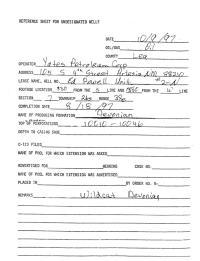 REFERENCE SHEET FOR UNDESIGNATED WELLS
DATE 10/9/97
OIL/GAS Oil
COUNTY Lea
OPERATOR Yates Petroleum Corp
ADDRESS 105 S 4th Street Artesia NM 88210
LEASE NAME, WELL NO. Ed Powell Unit #2-N
FOOTAGE LOCATION 930 FROM THE S LINE AND FROM THE W LINE
SECTION 7 TOWNSHIP 26s RANGE 38e
COMPLETION DATE 8/15/97
NAME OF PRODUCING FORMATION Devonian
TOP OF PERFORATIONS 10010 - 10046
DEPTH TO CASING SHOE
C-123 FILED
NAME OF POOL FOR WHICH EXTENSION WAS ASKED
ADVERTISED FOR HEARING CASE NO.
NAME OF POOL FOR WHICH EXTENSION WAS ADVERTISED
PLACED IN BY ORDER NO. R-
REMARKS Wildcat Devonian